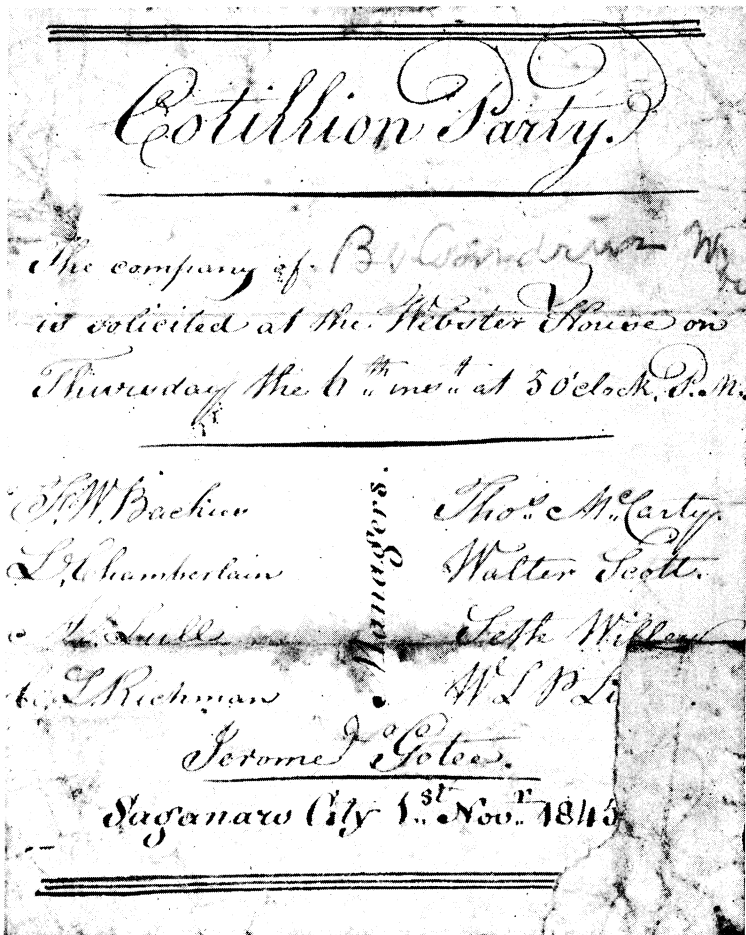 Cotillion Party.
The company of B.
is solicited at the Webster House on
Thursday the 6th inst at 5 o'clock, P.M.
Managers.
F. W. Backus
L. Chamberlain
Hull
L. Richman
Thos. McCarty.
Walter Scott.
Seth Willey
W L P Li
Jerome Gotee.
Saganaw City 1st Novr 1845